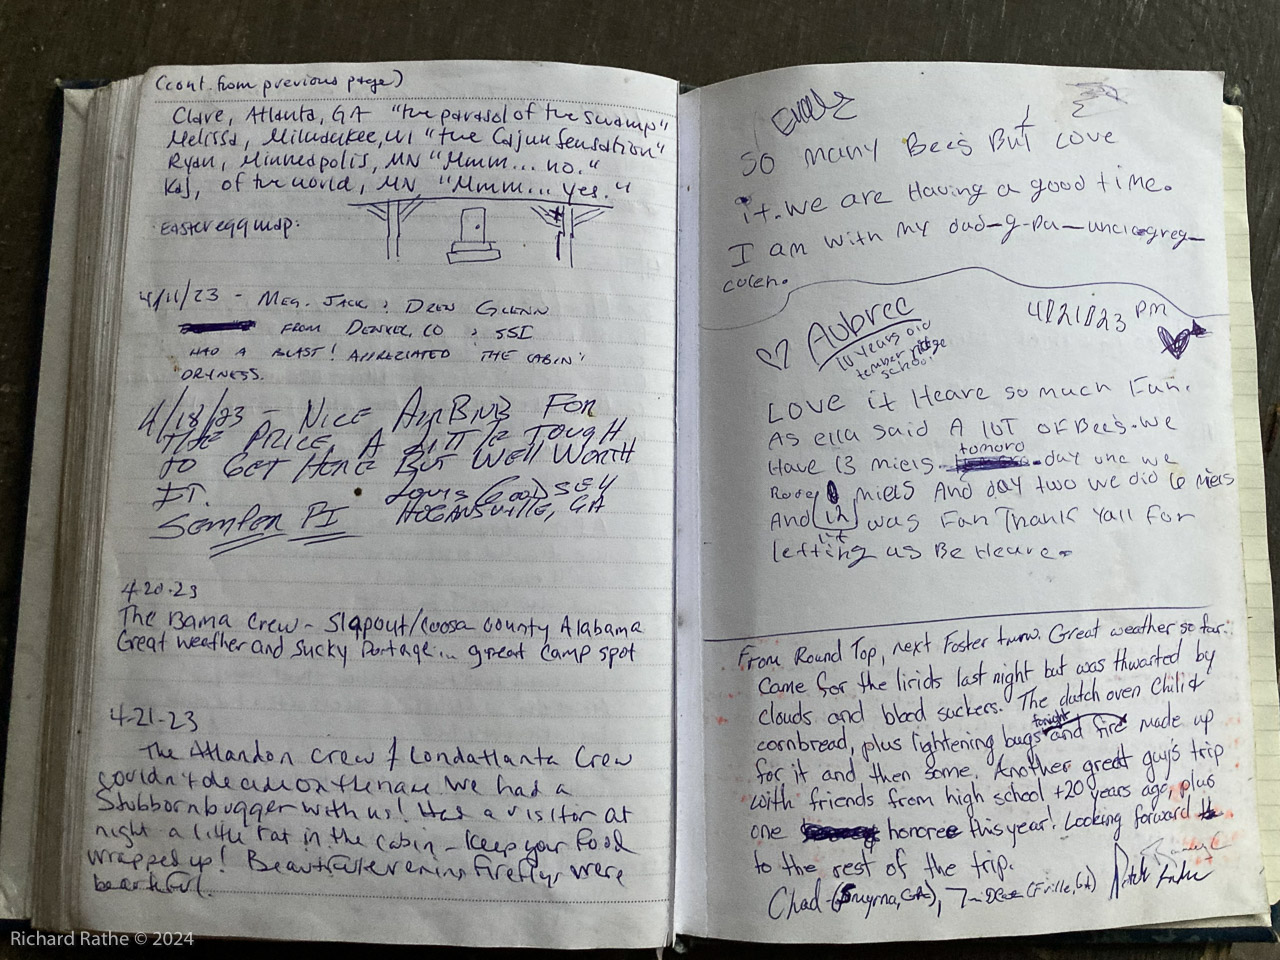 (cont. from previous page)
Clare, Atlanta, GA "the parasol of the swamp"
Melissa, Milwaukee, WI "the Cajun Sensation"
Ryan, Minneapolis, MN "Mmm... no."
Kaj, of the world, MN "Mmm... yes."
Easter egg map:
4/11/23 - Meg, Jack & Drew Glenn
from Denver, CO & SSI
Had a blast! Appreciated the cabin's
dryness.
4/18/23 - Nice AirBnB For
the Price, A little tough
to get here but well worth
It.
Louis Sey
Hogansville, GA
Semper PI
4-20-23
The Bama Crew - Slapout/Coosa County Alabama
Great weather and sucky portage... great camp spot
4-21-23
The Atlandon Crew / Londatlanta Crew
couldn't decide on the name we had a
Stubborn bugger with us! Had a visitor at
night a little rat in the cabin - keep your food
wrapped up! Beautiful evening fireflys were
beautiful.
So many Bees But Love
it. we are Having a good time.
I am with my dad-g-pa-uncle greg-
colen.
Aubree
10 years old
tember ridge
school
4/21/23 PM
Love it Heare so much Fun.
As ella said A lot of Bee's. we
Have 13 miels. tomoro day one we
Rode miels And day two we did 6 miels
And it was Fun Thank Yall For
letting us Be Heare.
From Round Top, next Foster tmrw. Great weather so far.
Came for the lirids last night but was thwarted by
clouds and blood suckers. The dutch oven Chili &
cornbread, plus lightening bugs tonight and fire made up
for it and then some. Another great guy's trip
with friends from high school +20 years ago, plus
one honoree this year! Looking forward
to the rest of the trip.
Chad - (Smyrna, GA), (F'ville, GA)
Richard Rathe © 2024